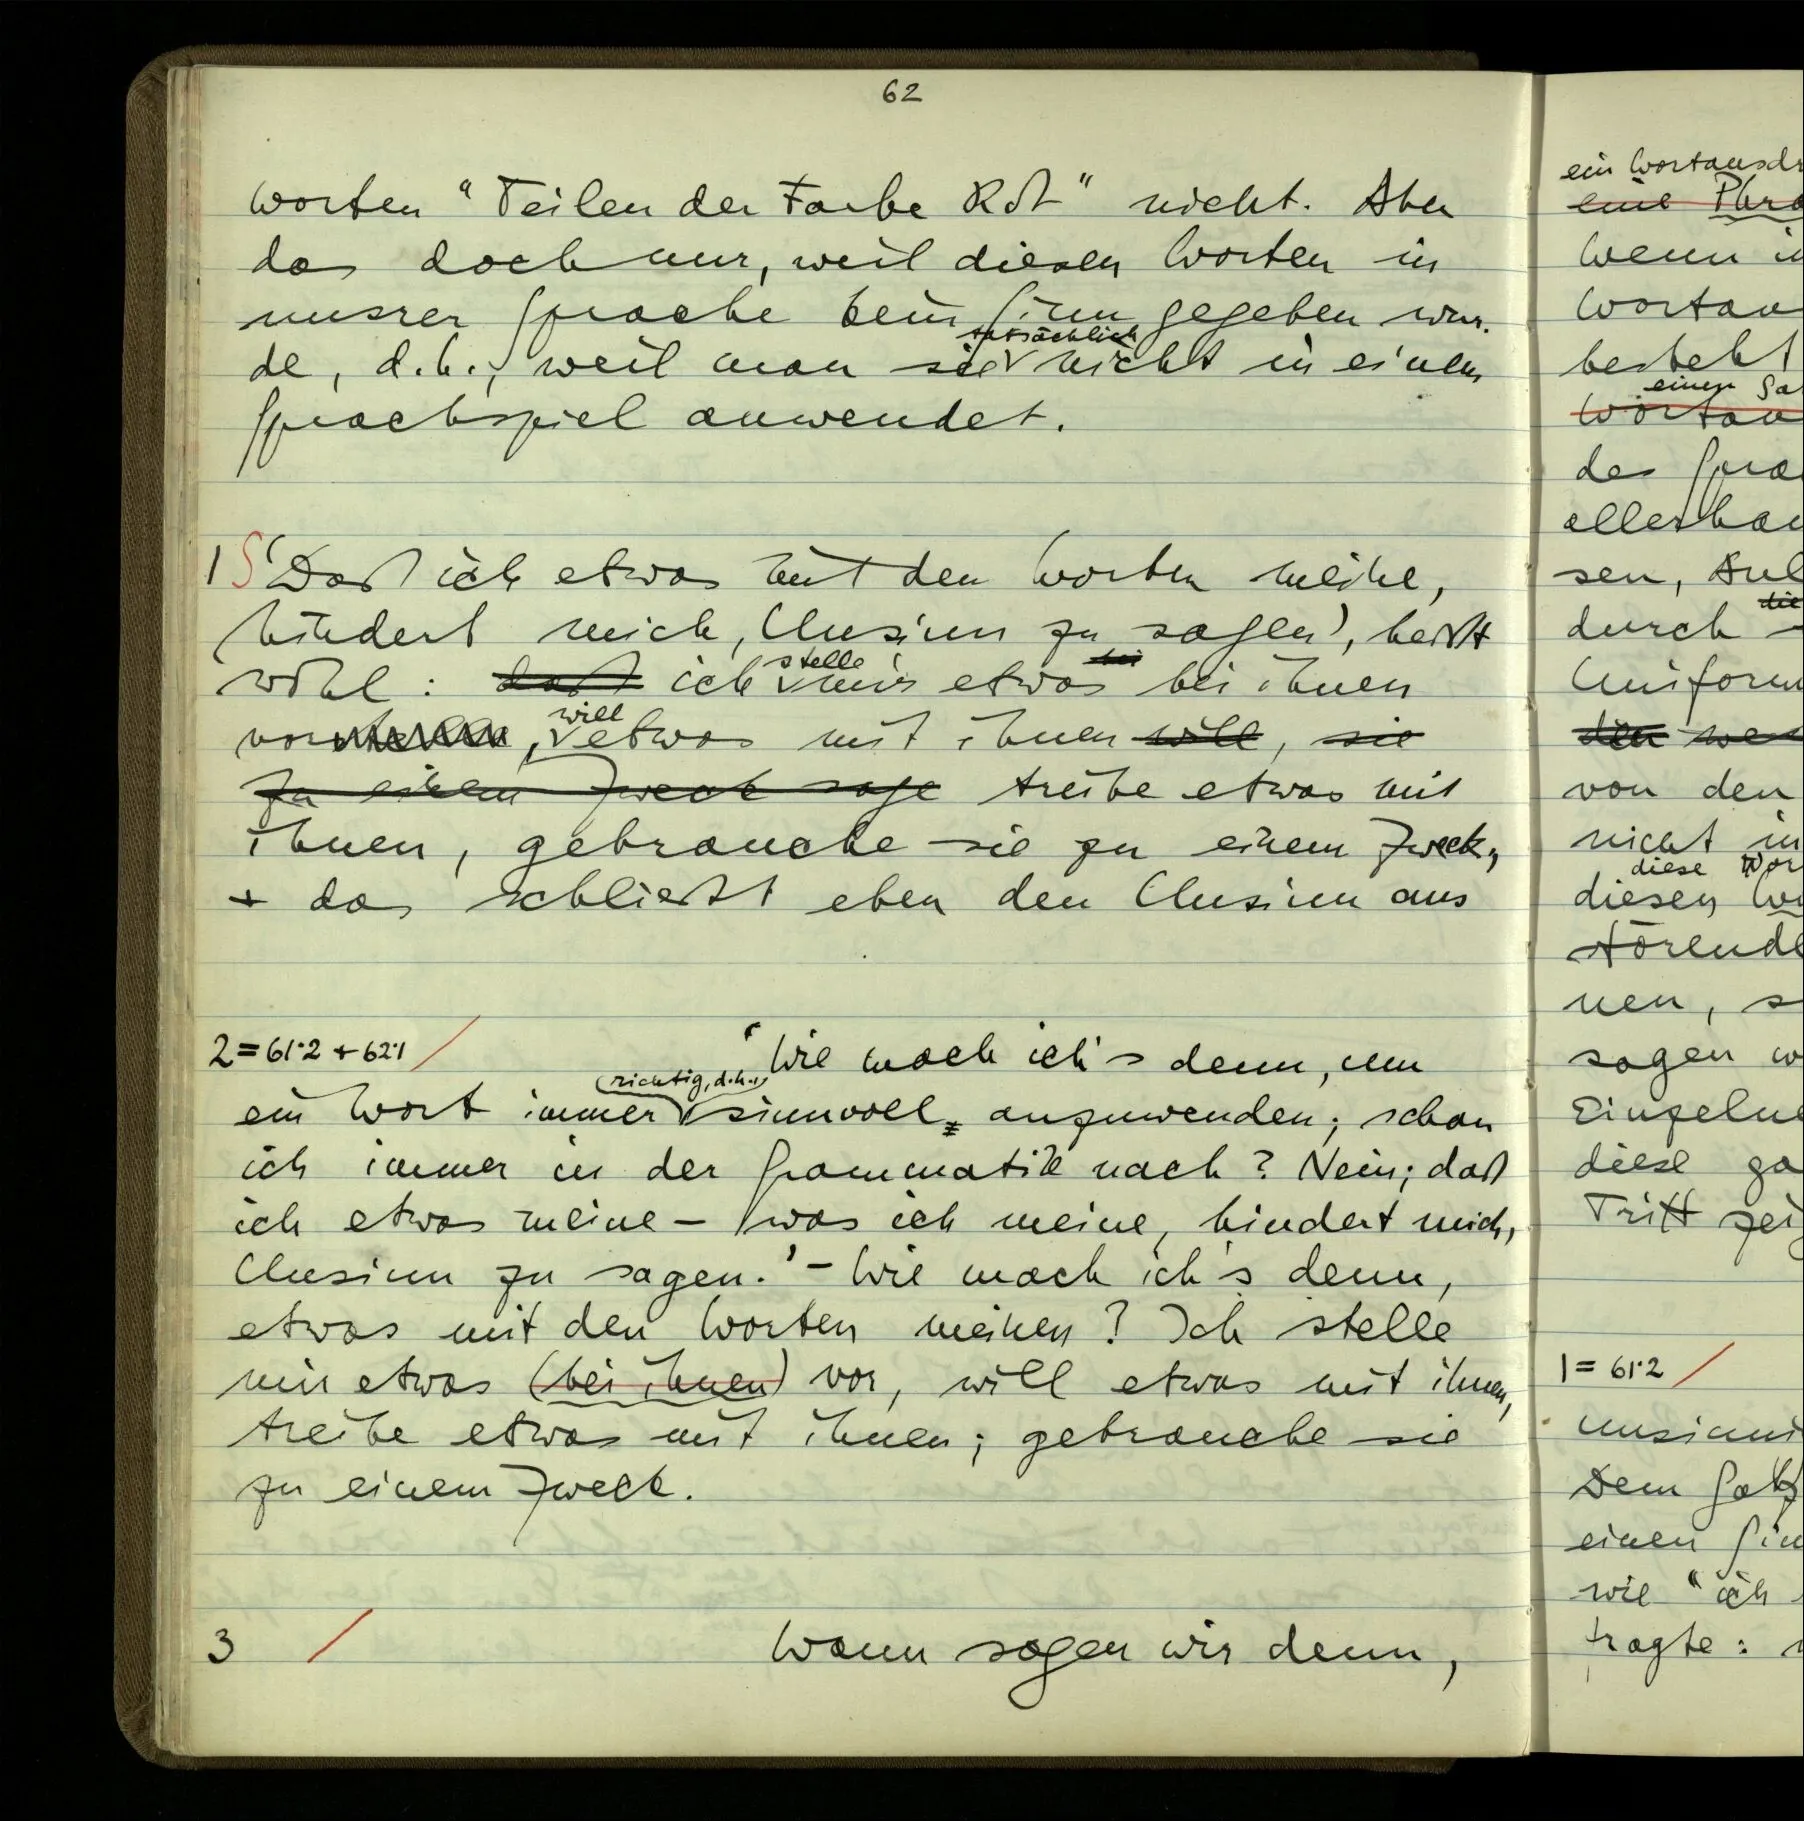 62
Worten "Teilen der Farbe Rot" nicht. Aber
das doch nur, weil diesen Worten in
unsrer Sprache kein Sinn gegeben wur-
tatsächlich
de, d.h., weil man sie nicht in einem
Sprachspiel anwendet.
1 S 'Daß ich etwas mit den Worten meine,
hindert mich, Unsinn zu sagen', heißt
stelle bei
wohl: daß ich mir etwas bei ihnen
will
vor, etwas mit ihnen will, sie
zu einem Zweck sage treibe etwas mit
ihnen, gebrauche sie zu einem Zweck,
+ das schließt eben den Unsinn aus
2 = 61·2 + 62·1 / 'Wie mach ich's denn, um
(richtig, d.h.,)
ein Wort immer sinnvoll anzuwenden; schau
ich immer in der Grammatik nach? Nein; daß
ich etwas meine – was ich meine, hindert mich,
Unsinn zu sagen.' – Wie mach ich's denn,
etwas mit den Worten meinen? Ich stelle
mir etwas (bei ihnen) vor, will etwas mit ihnen,
treibe etwas mit ihnen; gebrauche sie
zu einem Zweck.
3 / Wann sagen wir denn,
ein Wortausdr
eine Phra
Wenn i
Wortau
besteht
einen Sa
Wortau
des Spra
allerhan
sen, Aul
die
durch
Uniform
den we
von den
nicht in
diese Wor
diesen Wo
störende
nen, s
sagen w
Einzelne
diese ga
Tritt zei
1 = 61·2 /
unsinni
Dem Satz
einen Sin
wie "ich
fragte: